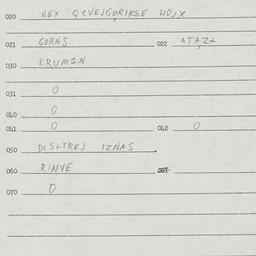 020 NEX QEVEJGORIKSE HOJX
021 GORNS 022 ATAZT
030 KRUMIN
031 0
040 0
041 0 042 0
050 DISTREJ IZNAS
060 RINVE
070 0